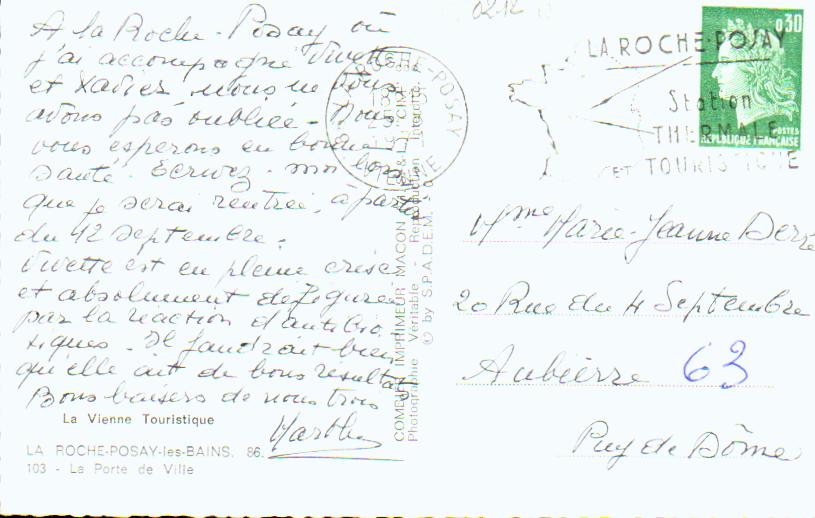 A la Roche-Posay où
j'ai accompagné Yvette
et Xavier nous ne vous
avons pas oubliée - Nous
vous espérons en bonne
santé. Ecrivez-moi lors
que je serai rentrée, à partir
du 12 Septembre.
Yvette est en pleine crise
et absolument défigurée
par la réaction d'antibio
tiques. Il faudrait bien
qu'elle ait de bons résultats
Bons baisers de nous trois
Marthe
La Vienne Touristique
LA ROCHE-POSAY-les-BAINS. 86.
103 - La Porte de Ville
IMPRIMEUR - MACON
Photographie Véritable - Reproduction Interdite
© by S.P.A.D.E.M.
ROCHE-POSAY
VIENNE
LA ROCHE-POSAY
Station
THERMALE
ET TOURISTIQUE
0,30
POSTES
REPUBLIQUE FRANÇAISE
Mme Marie-Jeanne
20 Rue du 4 Septembre
Aubière 63
Puy de Dôme